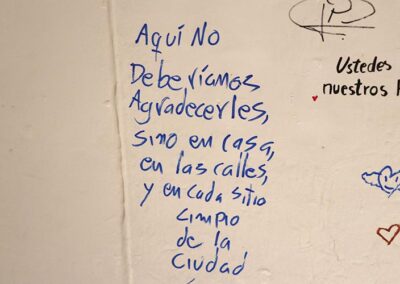 Aquí No
Deberíamos
Agradecerles,
sino en casa,
en las calles,
y en cada sitio
Limpio
de la
Ciudad
Ustedes
nuestros